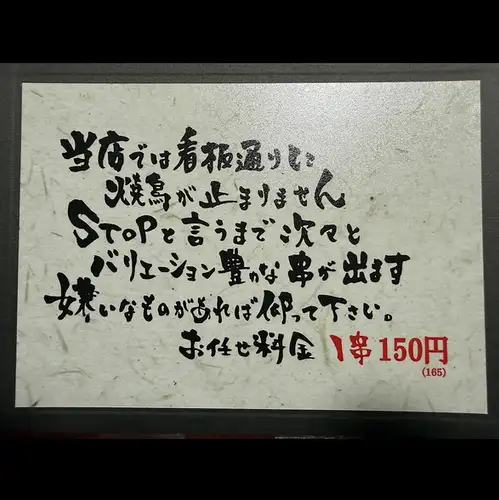 当店では看板通りに
焼鳥が止まりません
STOPと言うまで次々と
バリエーション豊かな串が出ます
嫌いなものがあれば仰って下さい。
お任せ料金 1串150円
(165)